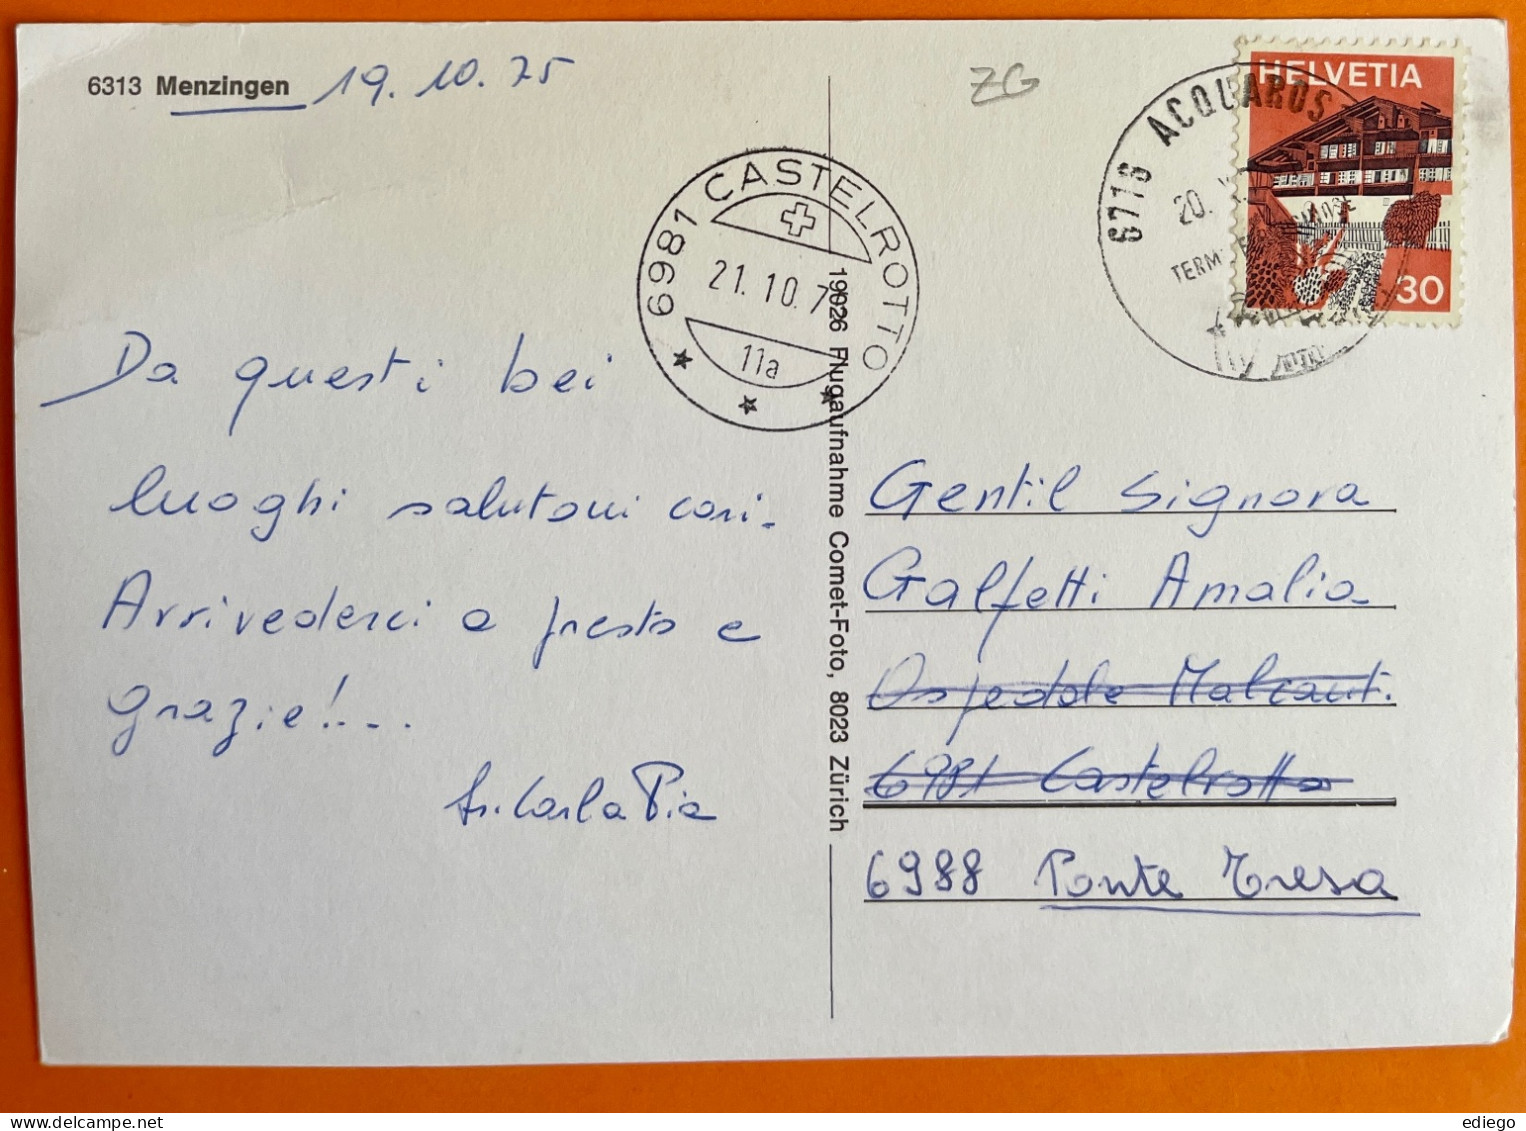 6313 Menzingen 19.10.75
ZG
HELVETIA
30
6716 ACQUAROS
20.
TERM
6981 CASTELROTTO
21.10.7
11a
19026 Flugaufnahme Comet-Foto, 8023 Zürich
Da questi bei
luoghi salutoni cari.
Arrivederci a presto e
grazie!...
Sr. Carla Pia
Gentil Signora
Galfetti Amalia
Ospedale Malcant.
6981 Castelrotto
6988 Ponte Tresa
ediego